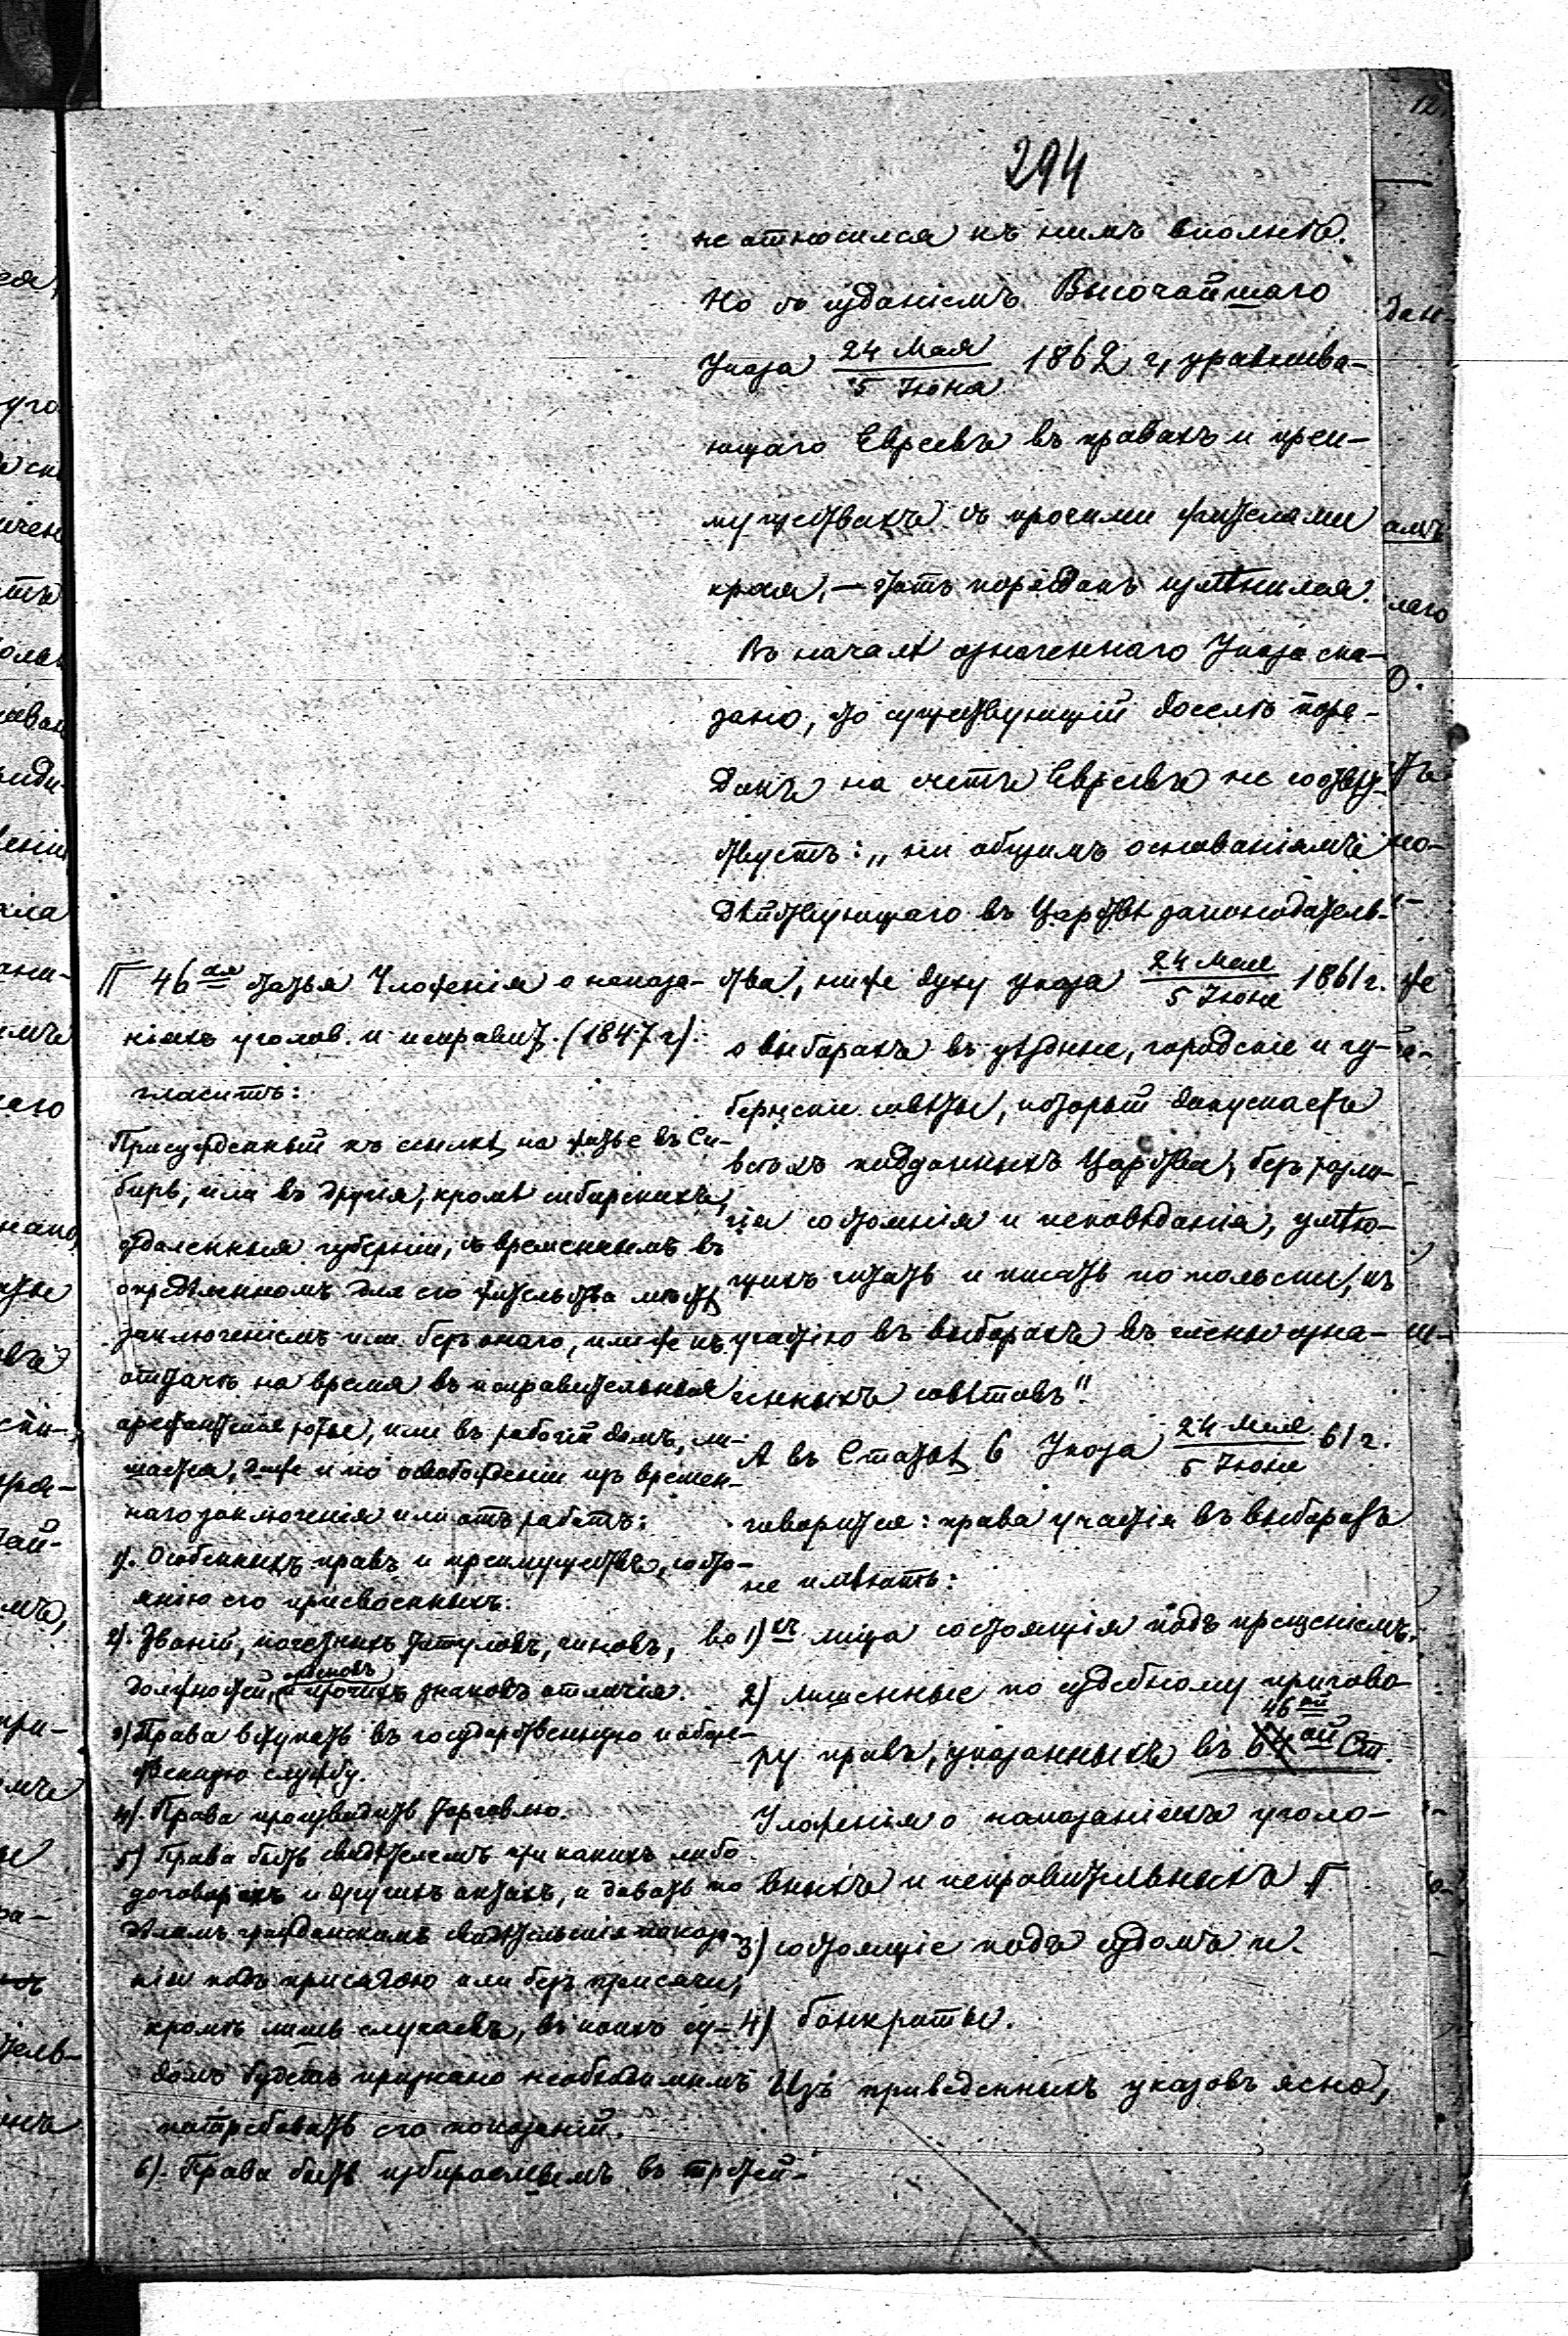 294
не относился къ нимъ вполнѣ.
Но съ изданіемъ Высочайшаго
Указа 24 Мая / 5 Іюня 1862 г, уравнива-
ющаго Евреевъ въ правахъ и преи-
муществахъ съ прочими жителями
края, — этотъ порядокъ измѣнился.
Въ началѣ означеннаго Указа ска-
зано, что существующій доселѣ поря-
докъ на счетъ Евреевъ не соотвѣт-
ствуетъ: „ни общимъ основаніямъ
дѣйствующаго въ Царствѣ законодатель-
ства, ниже духу указа 24 Мая / 5 Іюня 1861 г.
о выборахъ въ уѣздные, городскіе и гу-
бернскіе совѣты, который допускаетъ
всѣхъ подданныхъ Царства, безъ разли-
чія состоянія и исповѣданія, умѣю-
щихъ читать и писать по польски, къ
участію въ выборахъ въ члены озна-
ченныхъ совѣтовъ".
А въ Статьѣ 6 Указа 24 Мая / 5 Іюня 61 г.
говорится: права участія въ выборахъ
не имѣютъ:
во 1) хъ лица состоящія подъ прещеніемъ,
2) лишенные по судебному пригово-
ру правъ, указанныхъ въ 46 ой Ст.
Уложенія о наказаніяхъ уголо-
вныхъ и исправительныхъ Г
3) состоящіе подъ судомъ и
4) банкроты.
Изъ приведенныхъ указовъ ясно,
Г 46 ая статья Уложенія о наказа-
ніяхъ уголов. и исправит. (1847 г).
гласитъ:
Присужденный къ ссылкѣ на житье въ Си-
бирь, или въ другія, кромѣ сибирскихъ,
отдаленныя губерніи, съ временнымъ въ
опредѣленномъ для его жительства мѣстѣ
заключеніемъ или безъ онаго, или же къ
отдачѣ на время въ исправительныя
арестантскія роты, или въ рабочій домъ, ли-
шается, даже и по освобожденіи изъ времен-
наго заключенія или отъ работъ:
1). Особенныхъ правъ и преимуществъ, состо-
янію его присвоенныхъ.
2). Званій, почетныхъ титуловъ, чиновъ,
должностей, орденовъ и прочихъ знаковъ отличія.
3) Права вступать въ государственную и обще-
ственную службу.
4). Права производить торговлю.
5) Права быть свидѣтелемъ при какихъ либо
договорахъ и другихъ актахъ, и давать по
дѣламъ гражданскимъ свидѣтельскія показа-
нія подъ присягою или безъ присяги,
кромѣ лишь случаевъ, въ коихъ су-
домъ будетъ признано необходимымъ
потребовать его показаній.
6). Права быть избираемымъ въ третей-